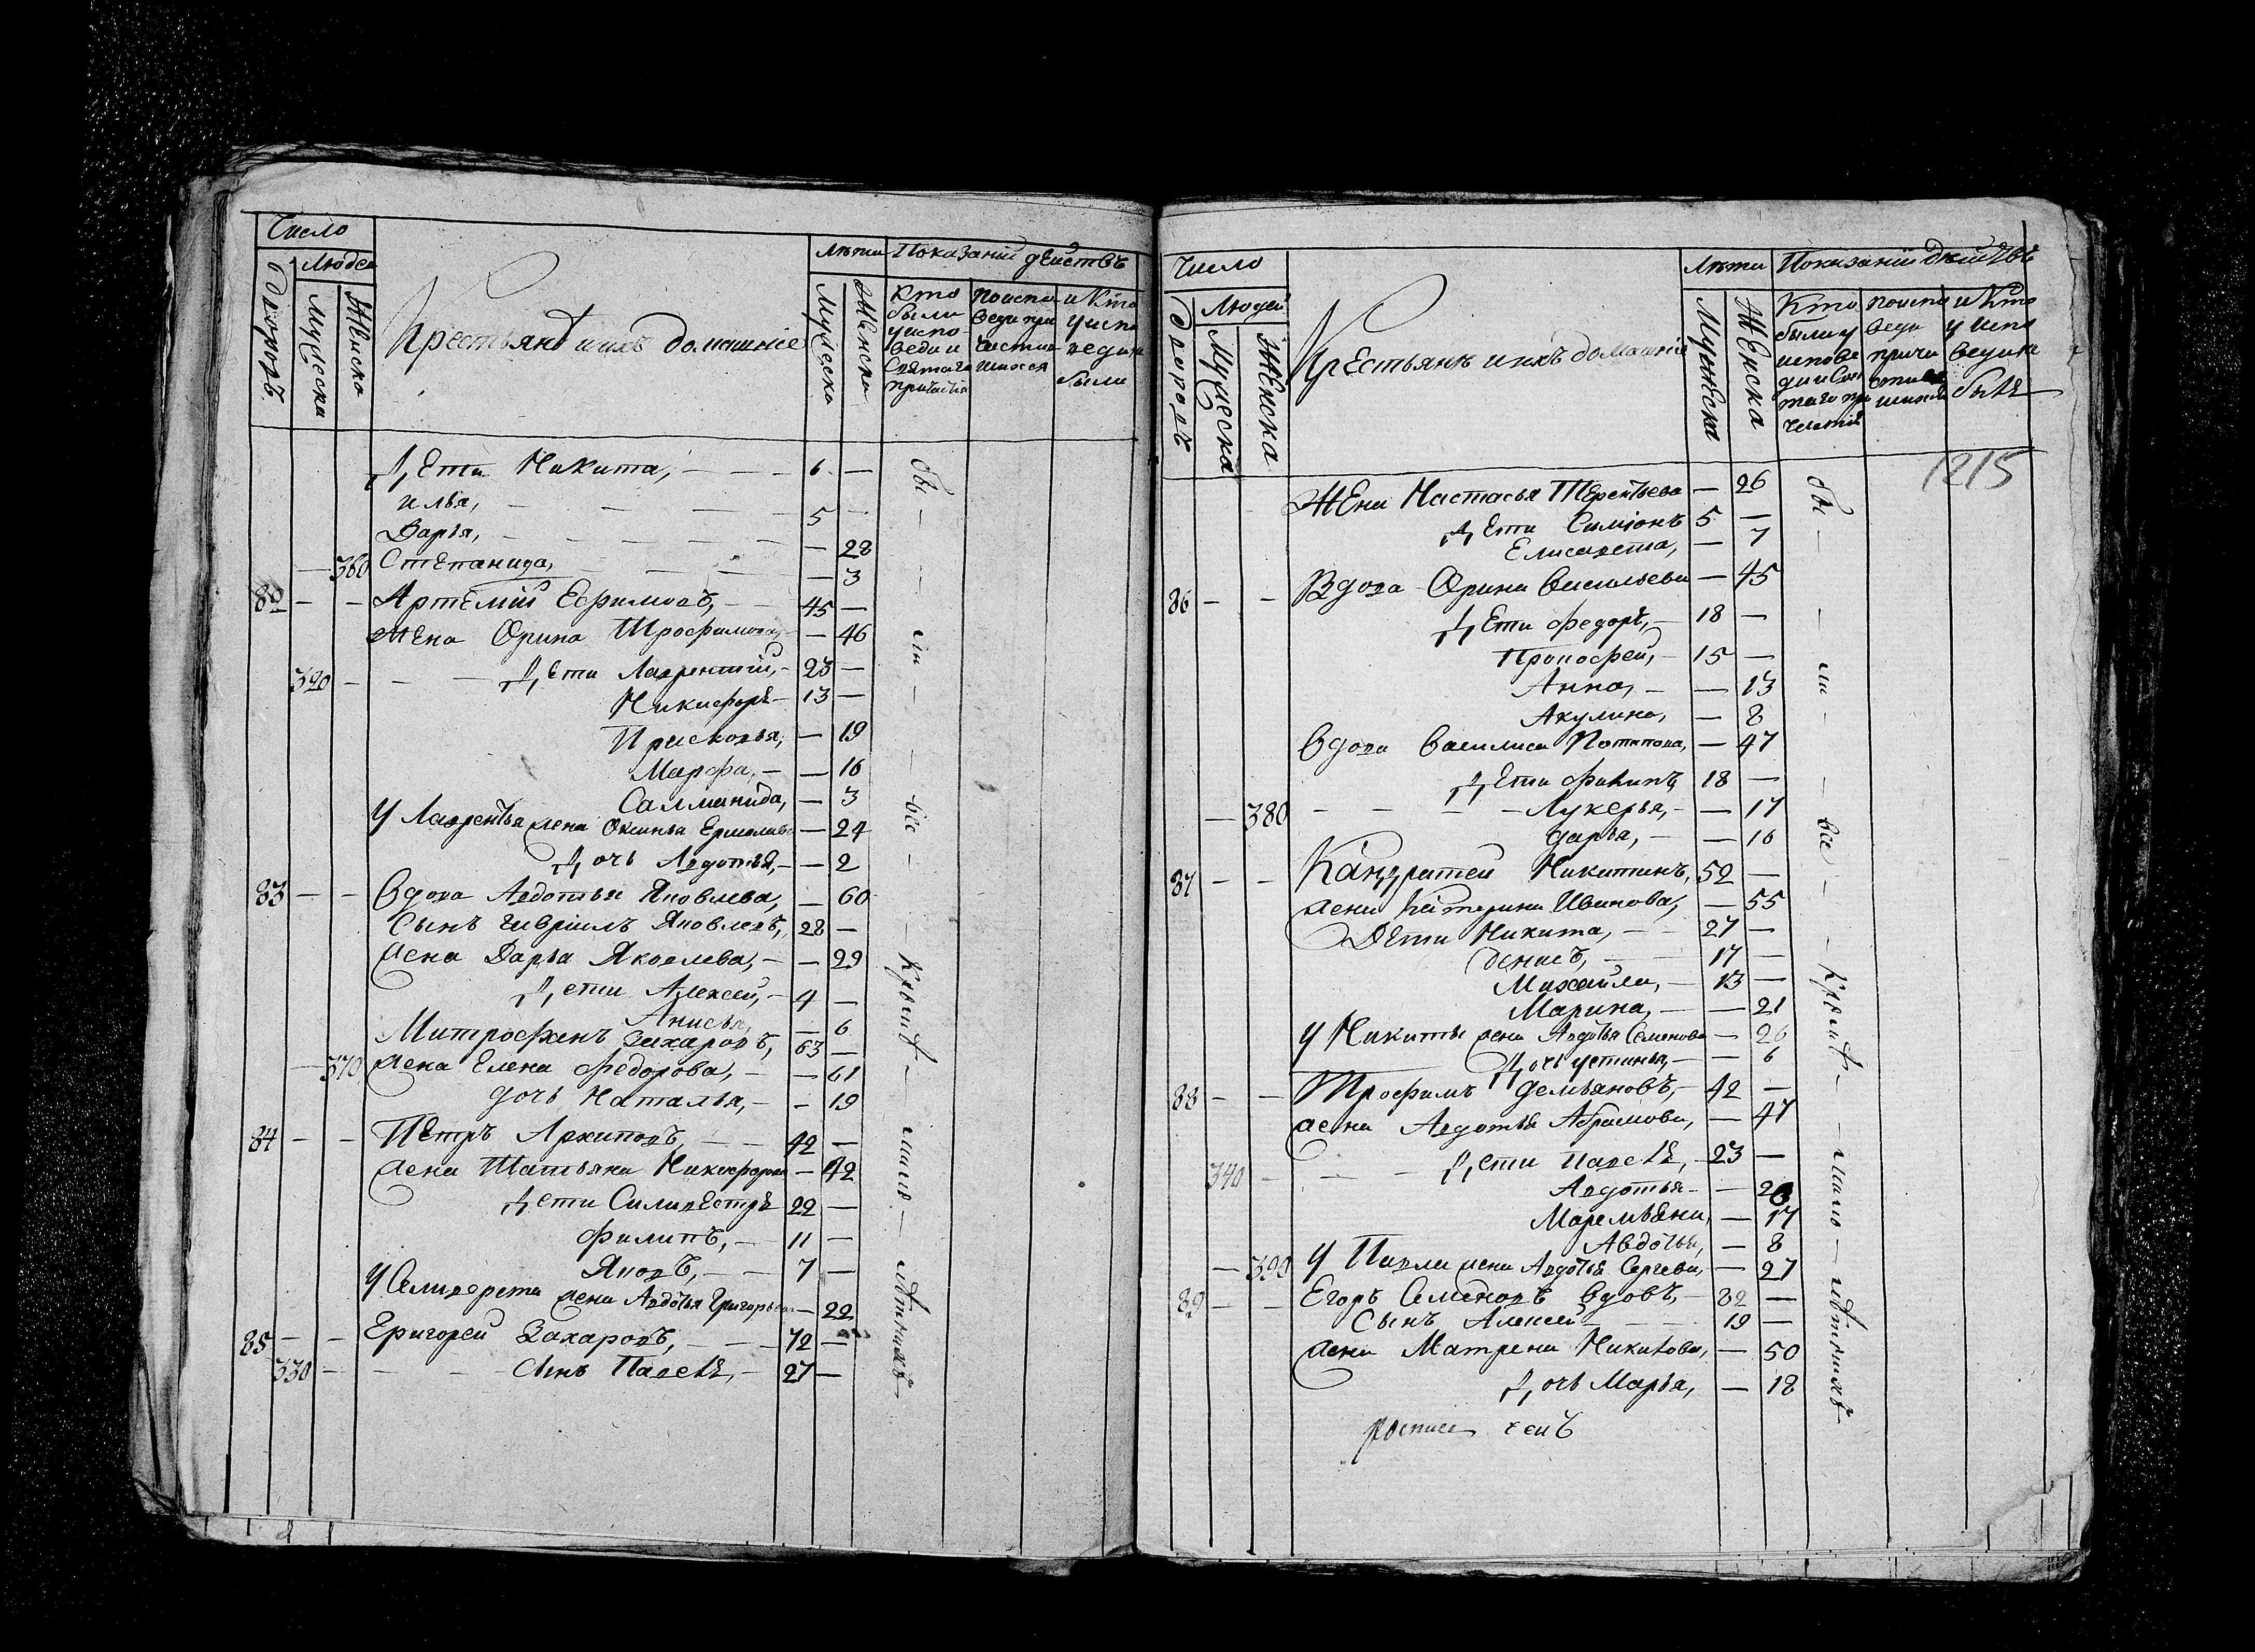 Число
Людей
дворовъ
Мужеска
Женска
Крестьянѣ ихъ домашніе
Лѣта
Мужеска
Женска
Показаніи действъ
Кто были у исповеди и Святаго причастія
и Кто у исповеди не были
Дети Никита, — — — 6 —
Илья, — — — 5 —
Дарья, — — — — 28
— 360 Степанида, — — — — 3
82 — — Артемій Ефимовъ, — 45 —
Жена Орина Трофимова, — 46
320 — — — Дети Лаврентий, — 23 —
Никифоръ — 13 —
Прасковья, — 19
Марфа, — — 16
Саламанида, — 3
У Лаврентья жена Оксинья Ермолаева — 24
Дочь Авдотья, — — 2
83 — — Вдова Авдотья Яковлева, — 60
Сынъ Гаврилъ Яковлевъ, 28 —
Жена Дарья Яковлева, — — 29
Дети Алексей, — 4 —
Анисья, — 6
Митрофанъ Захаровъ, 63 —
— 370 Жена Елена Федорова, — — 61
Дочь Наталья, — — 19
84 — — Петръ Архиповъ, — — 42 —
Жена Татьяна Никифорова — 42
Дети Силивестръ 22 —
Филипъ, — 11 —
Яковъ, — — 7 —
У Селиверста жена Авдотья Григорьева — 22
85 — — Григорей Захаровъ, — — 72 —
330 — — — — Сынъ Павелъ, — 27 —
бы — — ли — — все — — Крьомѣ — малолѣтнихъ
Число
Людей
дворовъ
Мужеска
Женска
Крестьянѣ ихъ домашніе
Лѣта
Мужеска
Женска
Показаніи
Кто были у исповеди и Святаго причастія
и Кто у исповеди не былѣ
1215
Жена Настасья Терентьева — 26
Дети Симіонъ 5 —
Елисавета, — 7
86 — — Вдова Орина Васильева — 45
Дети Федоръ, — 18 —
Прокофей, — 15 —
Анна, — — 13
Акулина, — 8
Вдова Василиса Потапова, — 47
Дети Филипъ 18 —
— 380 — — — Лукерья, — — 17
Дарья, — — 16
87 — — Кандратей Никитинъ, 52 —
жена Катерина Иванова, — 55
Дети Никита, — — 27 —
Денисъ, — 17 —
Михайла, — 13 —
Марина, — — 21
У Никиты жена Авдотья Семенова — 26
Дочь Устинья, — — 6
88 — — Трофимъ Демьяновъ, — 42 —
жена Авдотья Абрамова, — 47
340 — — — Дети Павелъ, — 23 —
Авдотья — — 20
Маремьяна, — 17
Авдотья, — 8
— 390 У Павла жена Авдотья Сергеева, — 27
89 — — Егоръ Семеновъ вдовъ, — 82 —
Сынъ Алексей — — 19 —
жена Матрена Никитова, — 50
Дочь Марья, — 18
бы — — ли — — все — — Крьомѣ — малолѣтнихъ